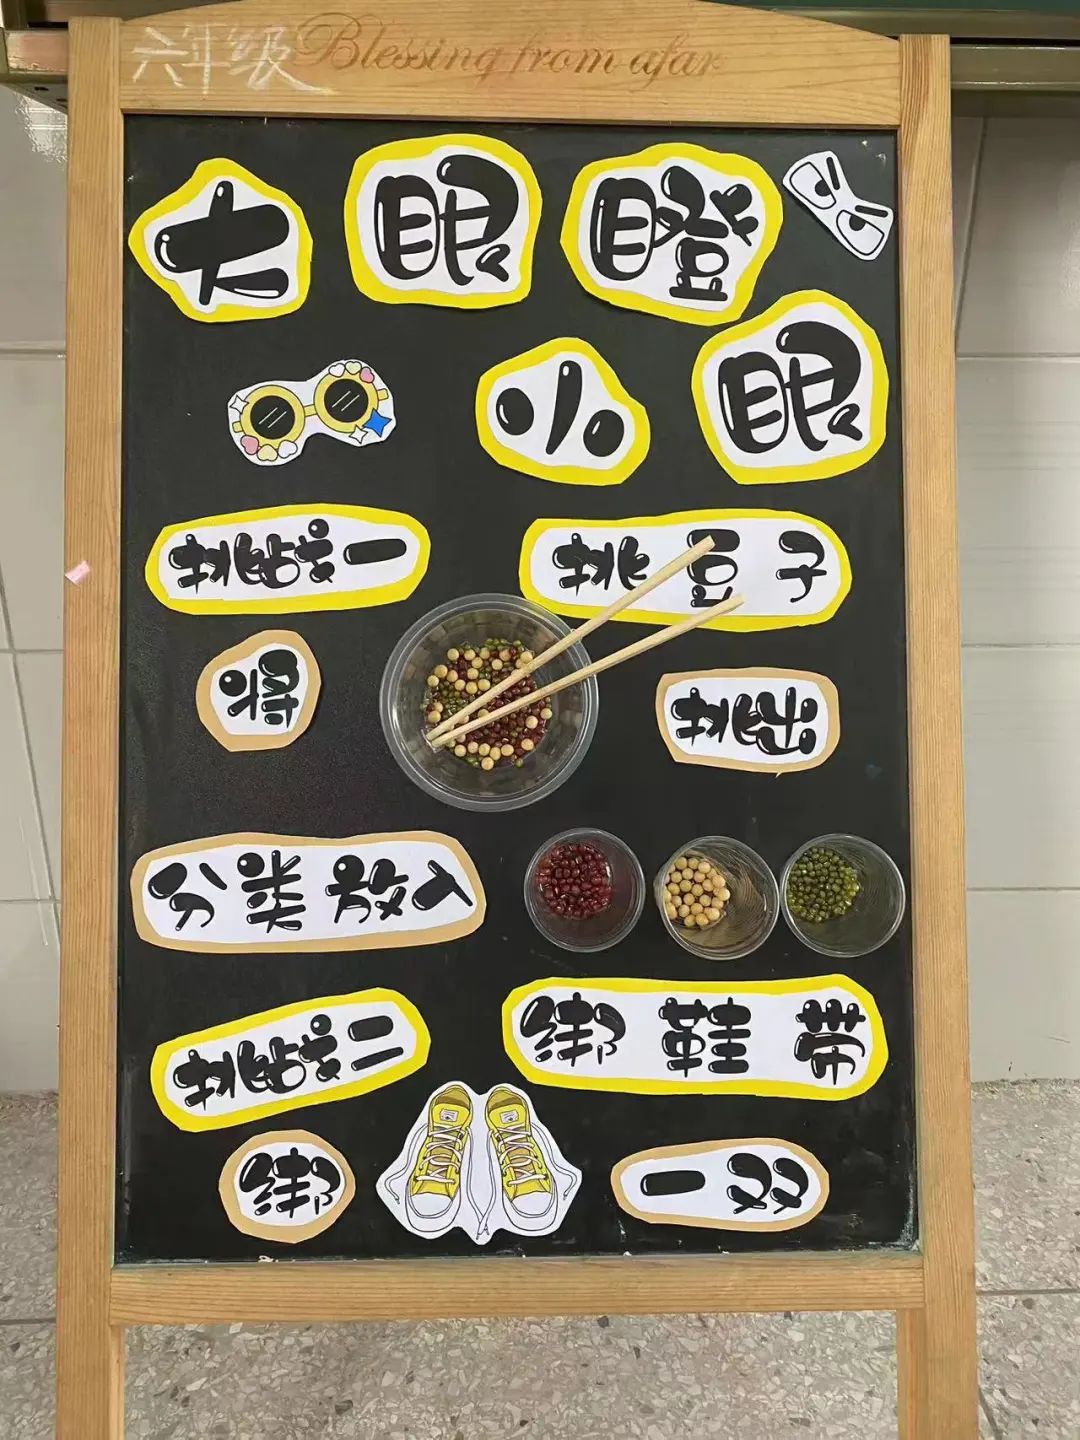 六年级 Blessing from afar
大眼瞪
小眼
挑战一 挑豆子
将 挑出
分类放入
挑战二 绑鞋带
绑 一双